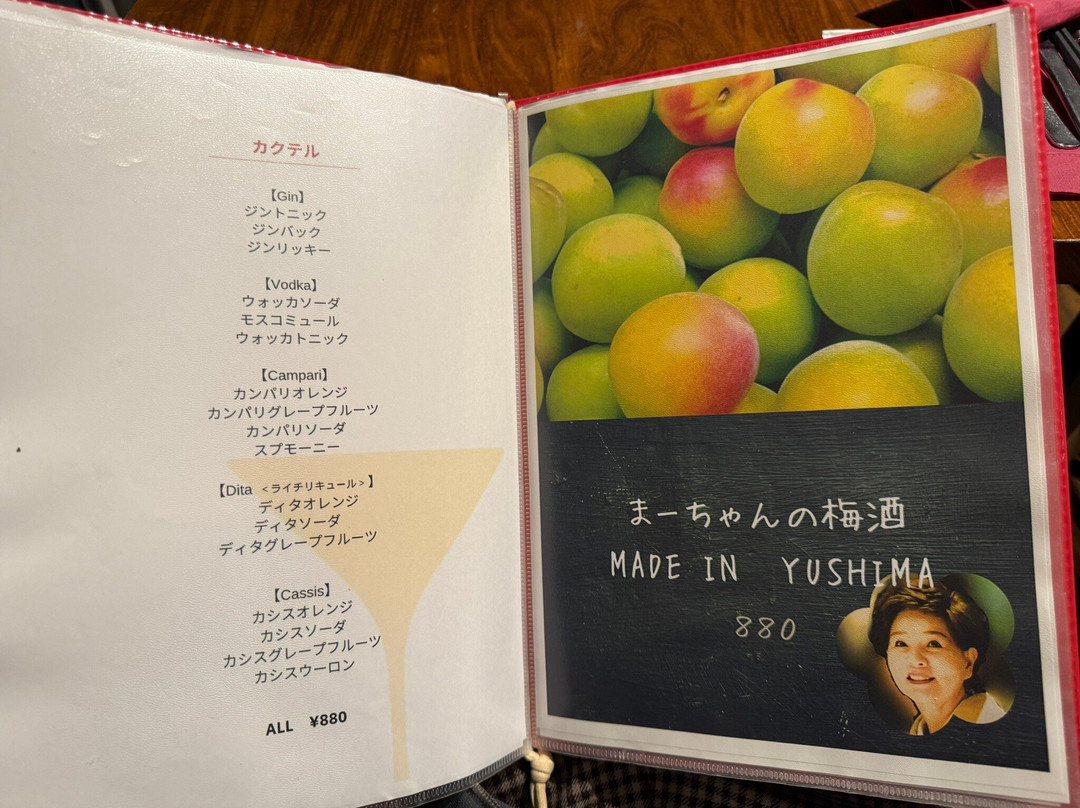 カクテル
【Gin】
ジントニック
ジンバック
ジンリッキー
【Vodka】
ウォッカソーダ
モスコミュール
ウォッカトニック
【Campari】
カンパリオレンジ
カンパリグレープフルーツ
カンパリソーダ
スプモーニー
【Dita <ライチリキュール>】
ディタオレンジ
ディタソーダ
ディタグレープフルーツ
【Cassis】
カシスオレンジ
カシスソーダ
カシスグレープフルーツ
カシスウーロン
ALL ¥880
まーちゃんの梅酒
MADE IN YUSHIMA
880